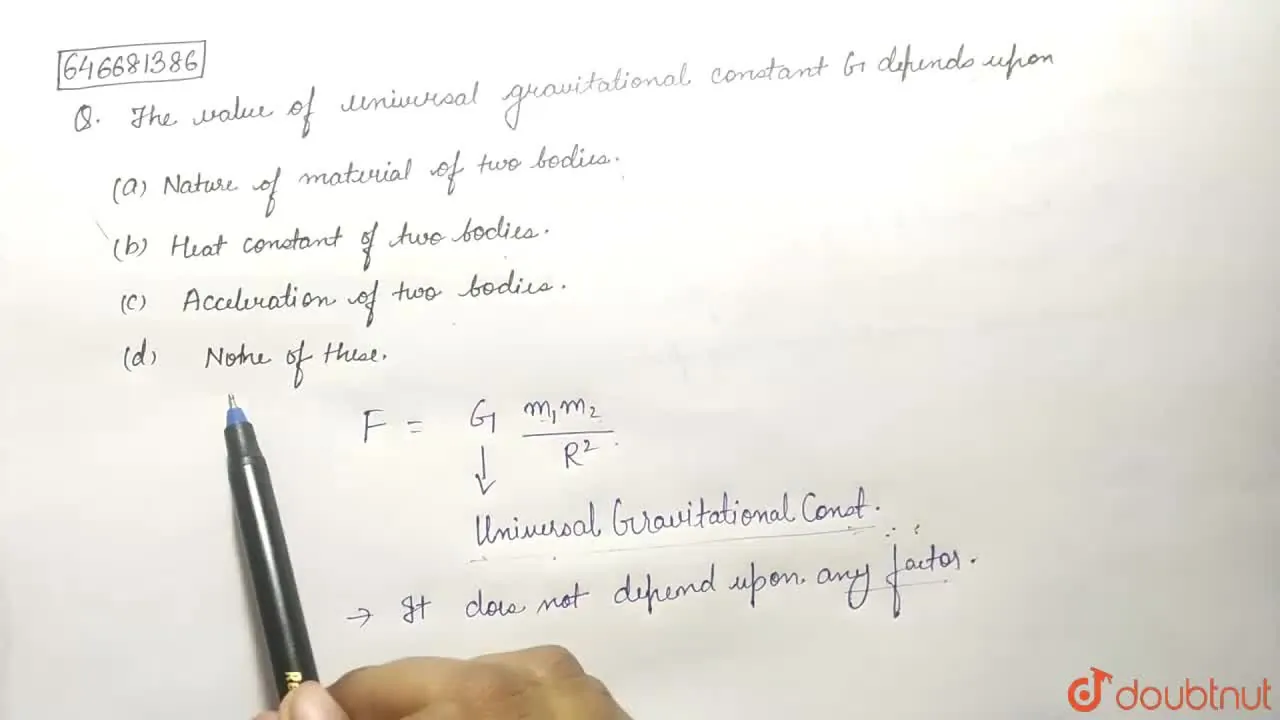 646681386
Q. The value of universal gravitational constant G depends upon
(a) Nature of material of two bodies.
(b) Heat constant of two bodies.
(c) Acceleration of two bodies.
(d) None of these.
F = G m₁m₂ / R²
↓
Universal Gravitational Const.
→ It does not depend upon any factor.
doubtnut